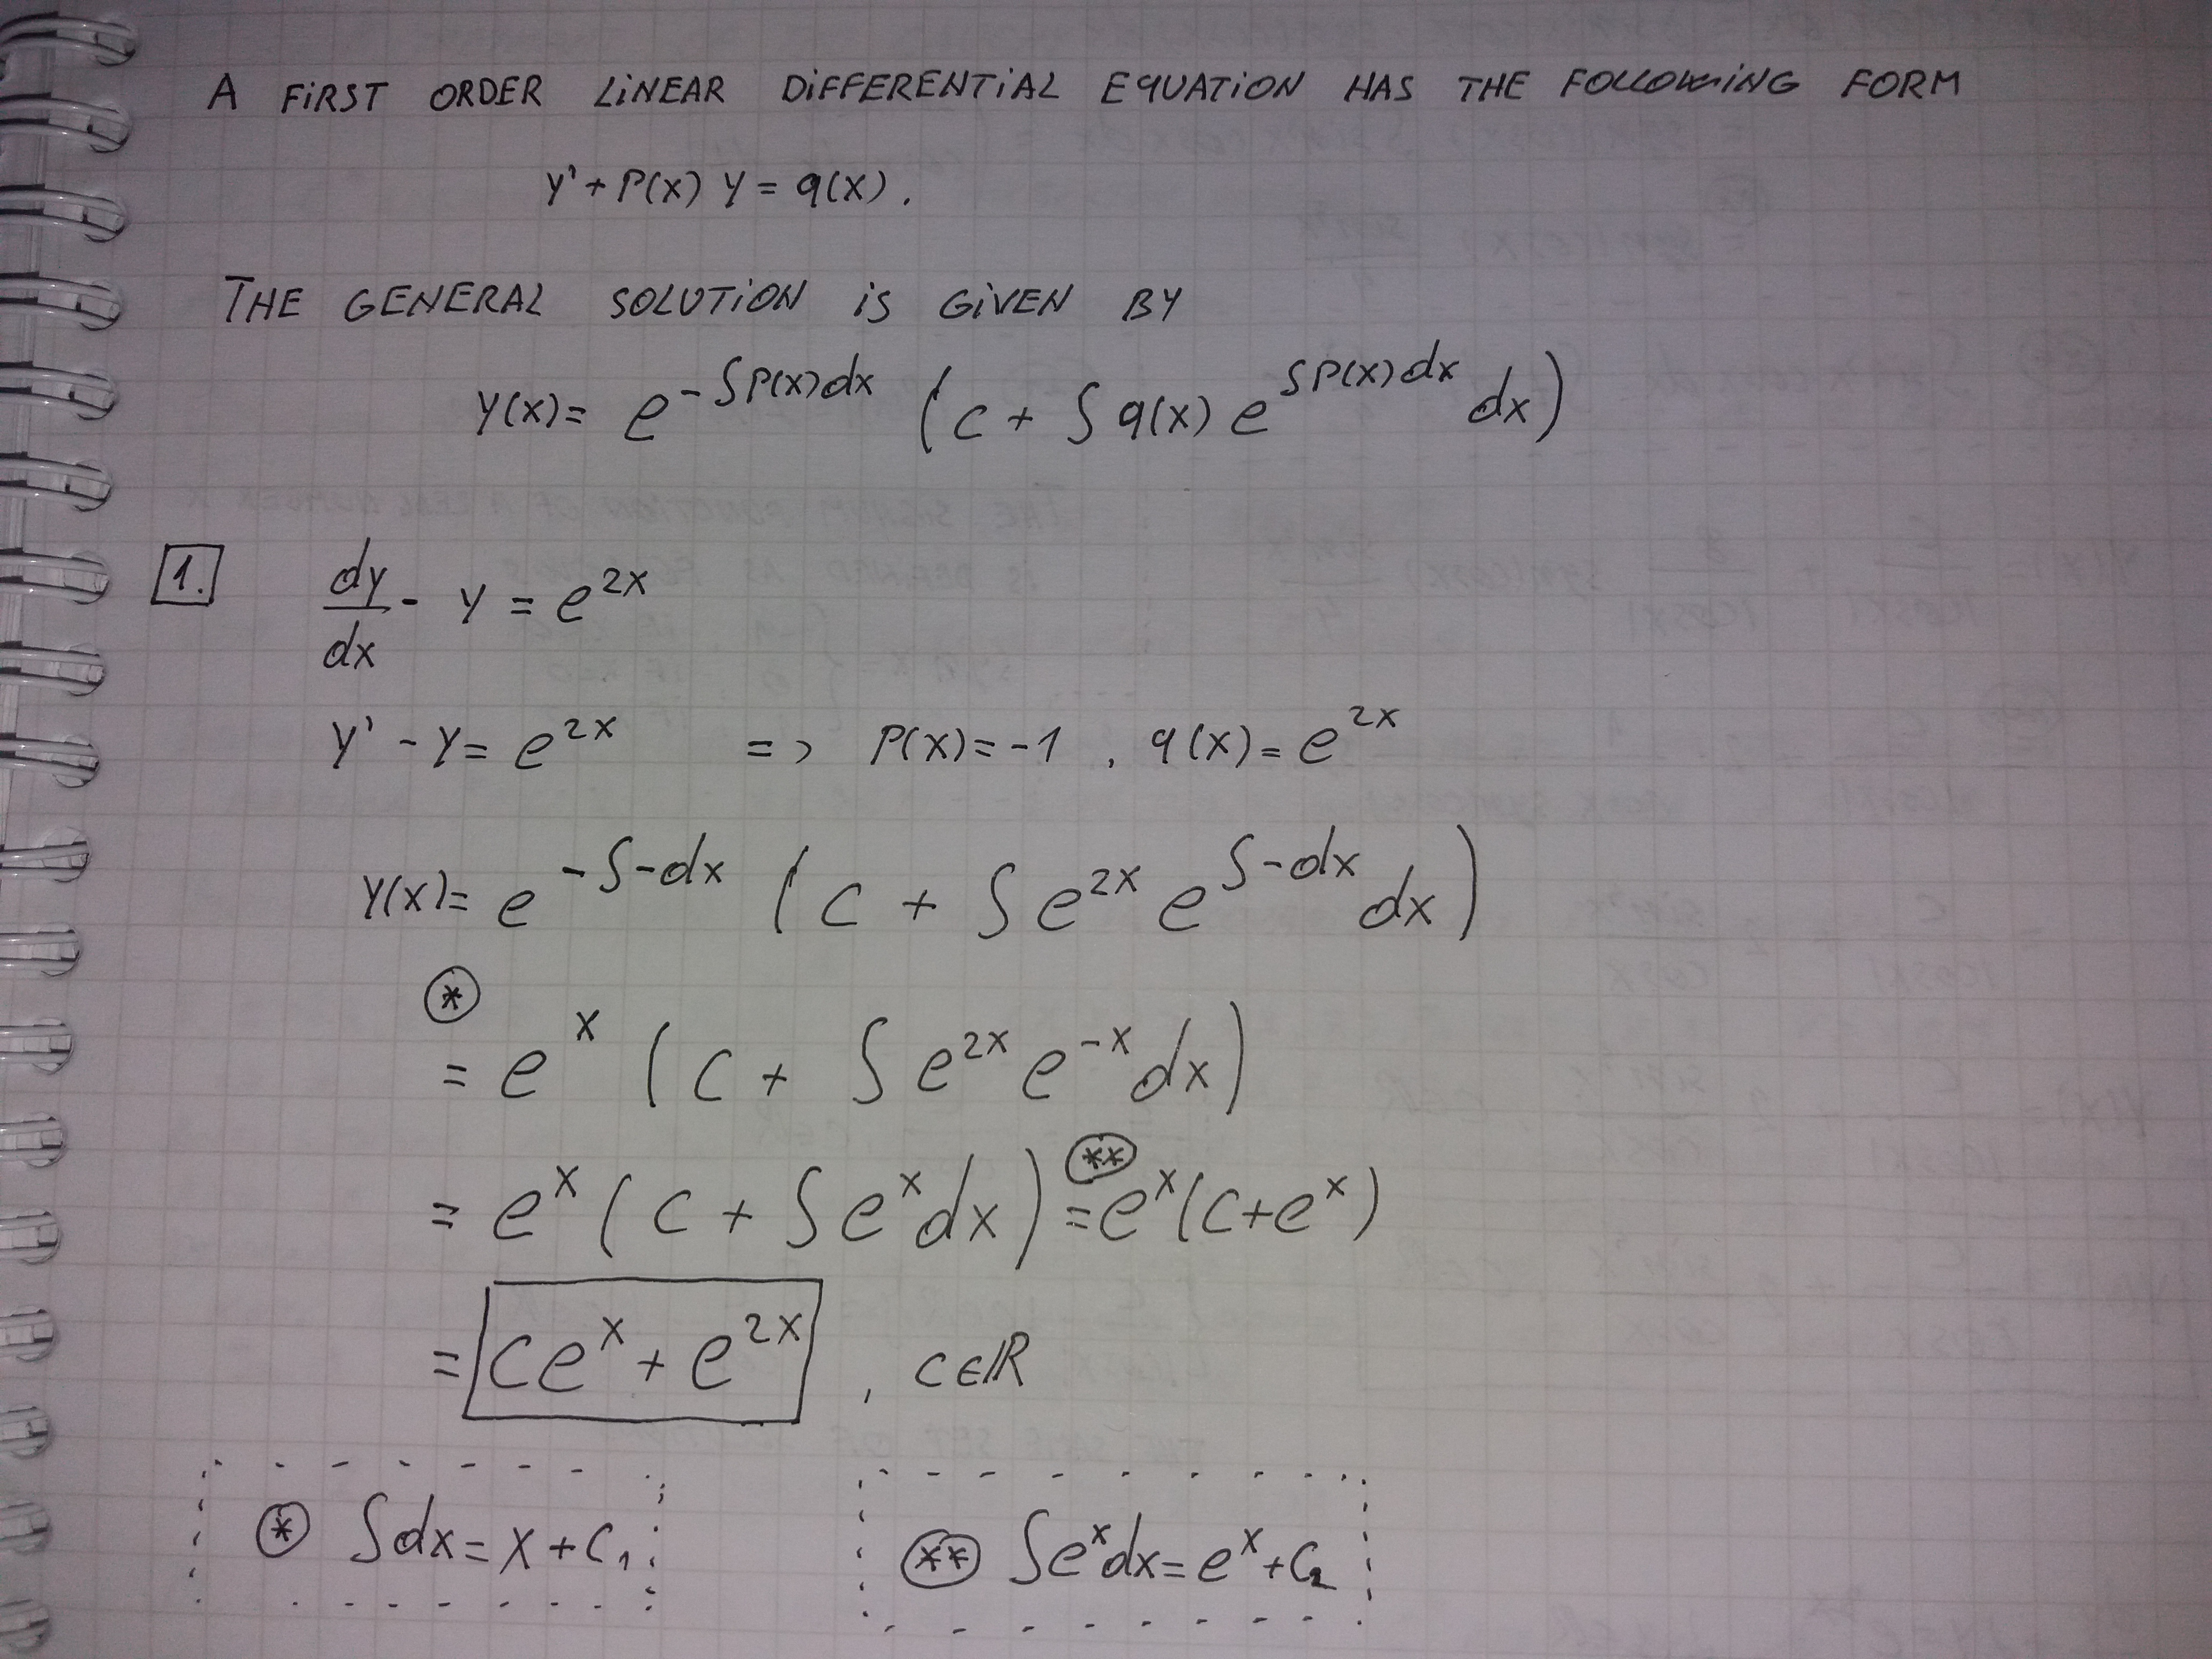 A FIRST ORDER LINEAR DIFFERENTIAL EQUATION HAS THE FOLLOWING FORM
y' + P(x) y = q(x).
THE GENERAL SOLUTION IS GIVEN BY
y(x) = e^{-∫P(x)dx} (c + ∫ q(x) e^{∫P(x)dx} dx)
1. dy/dx - y = e^{2x}
y' - y = e^{2x} => P(x) = -1, q(x) = e^{2x}
y(x) = e^{-∫-dx} (c + ∫ e^{2x} e^{∫-dx} dx)
(*)
= e^x (c + ∫ e^{2x} e^{-x} dx)
= e^x (c + ∫ e^x dx) (**) = e^x (c + e^x)
= ce^x + e^{2x}, c∈ℝ
(*) ∫dx = x + c₁
(**) ∫e^x dx = e^x + c₂